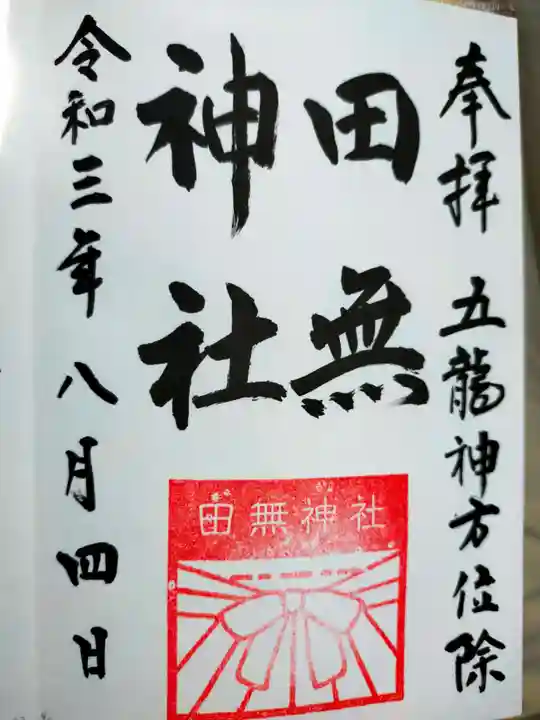 奉拝 五龍神方位除
田無
神社
田無神社
令和三年八月四日